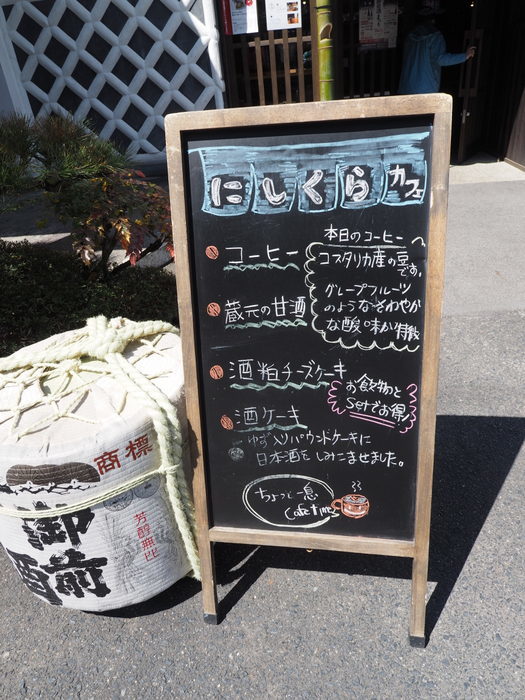 にしくらカフェ
コーヒー
本日のコーヒー
コスタリカ産の豆
です。
グレープフルーツ
のようなさわやか
な酸味が特徴
蔵元の甘酒
酒粕チーズケーキ
お飲物と
Setでお得!
酒ケーキ
ゆず入りパウンドケーキに
日本酒をしみこませました。
ちょっと一息
Cafe time
商標
御前
酒
芳醇無比